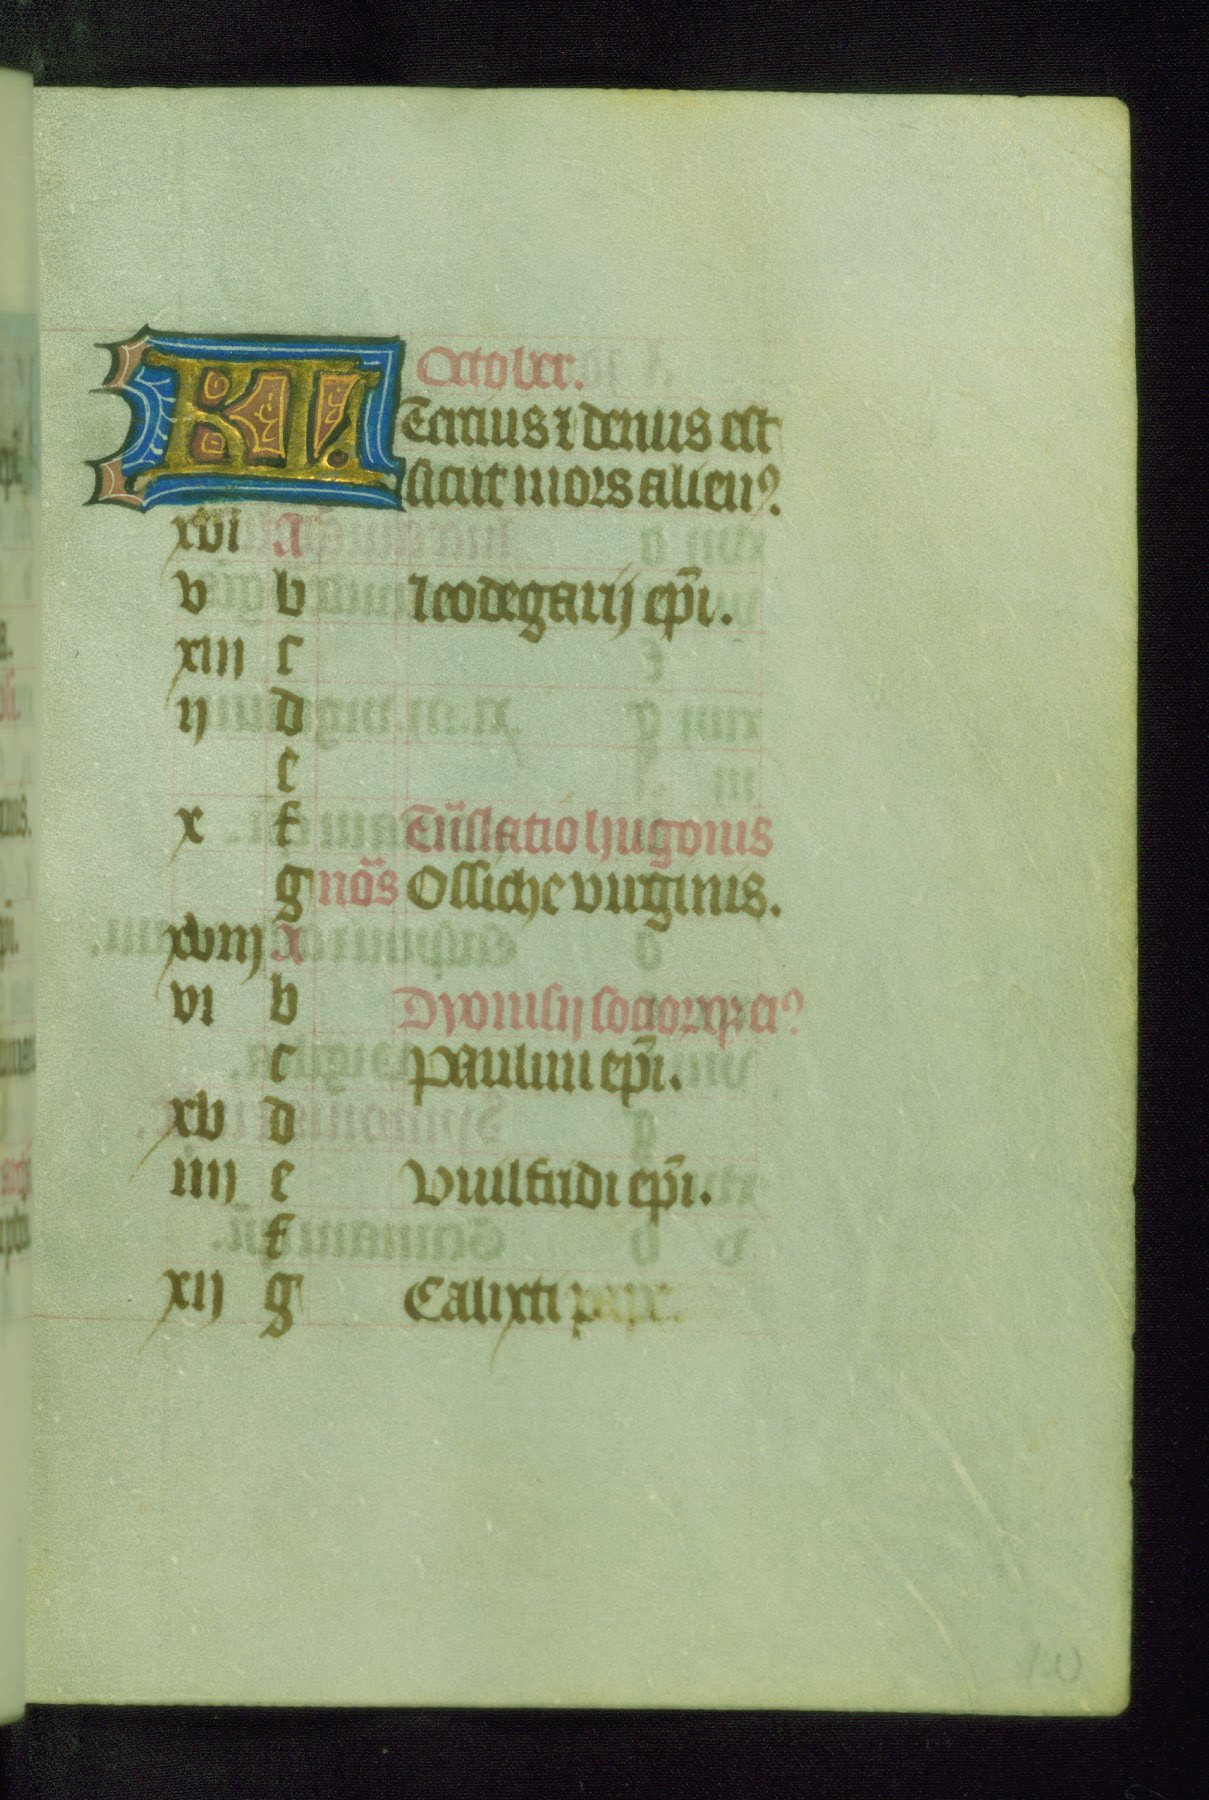 KL October.
Tercius ⁊ denus est
sicut mors alien⁹.
xvi A
v b leodegarij ep̄i.
xiii c
ij d
e
x f Tn̄slatio hugonis
g no̅s Ossiche virginis.
xviij A
vi b Dyonisij socioꝝqꝫ ei⁹
c paulini ep̄i.
xv d
iiij e vvilfridi ep̄i.
f
xij g Calixti pape.